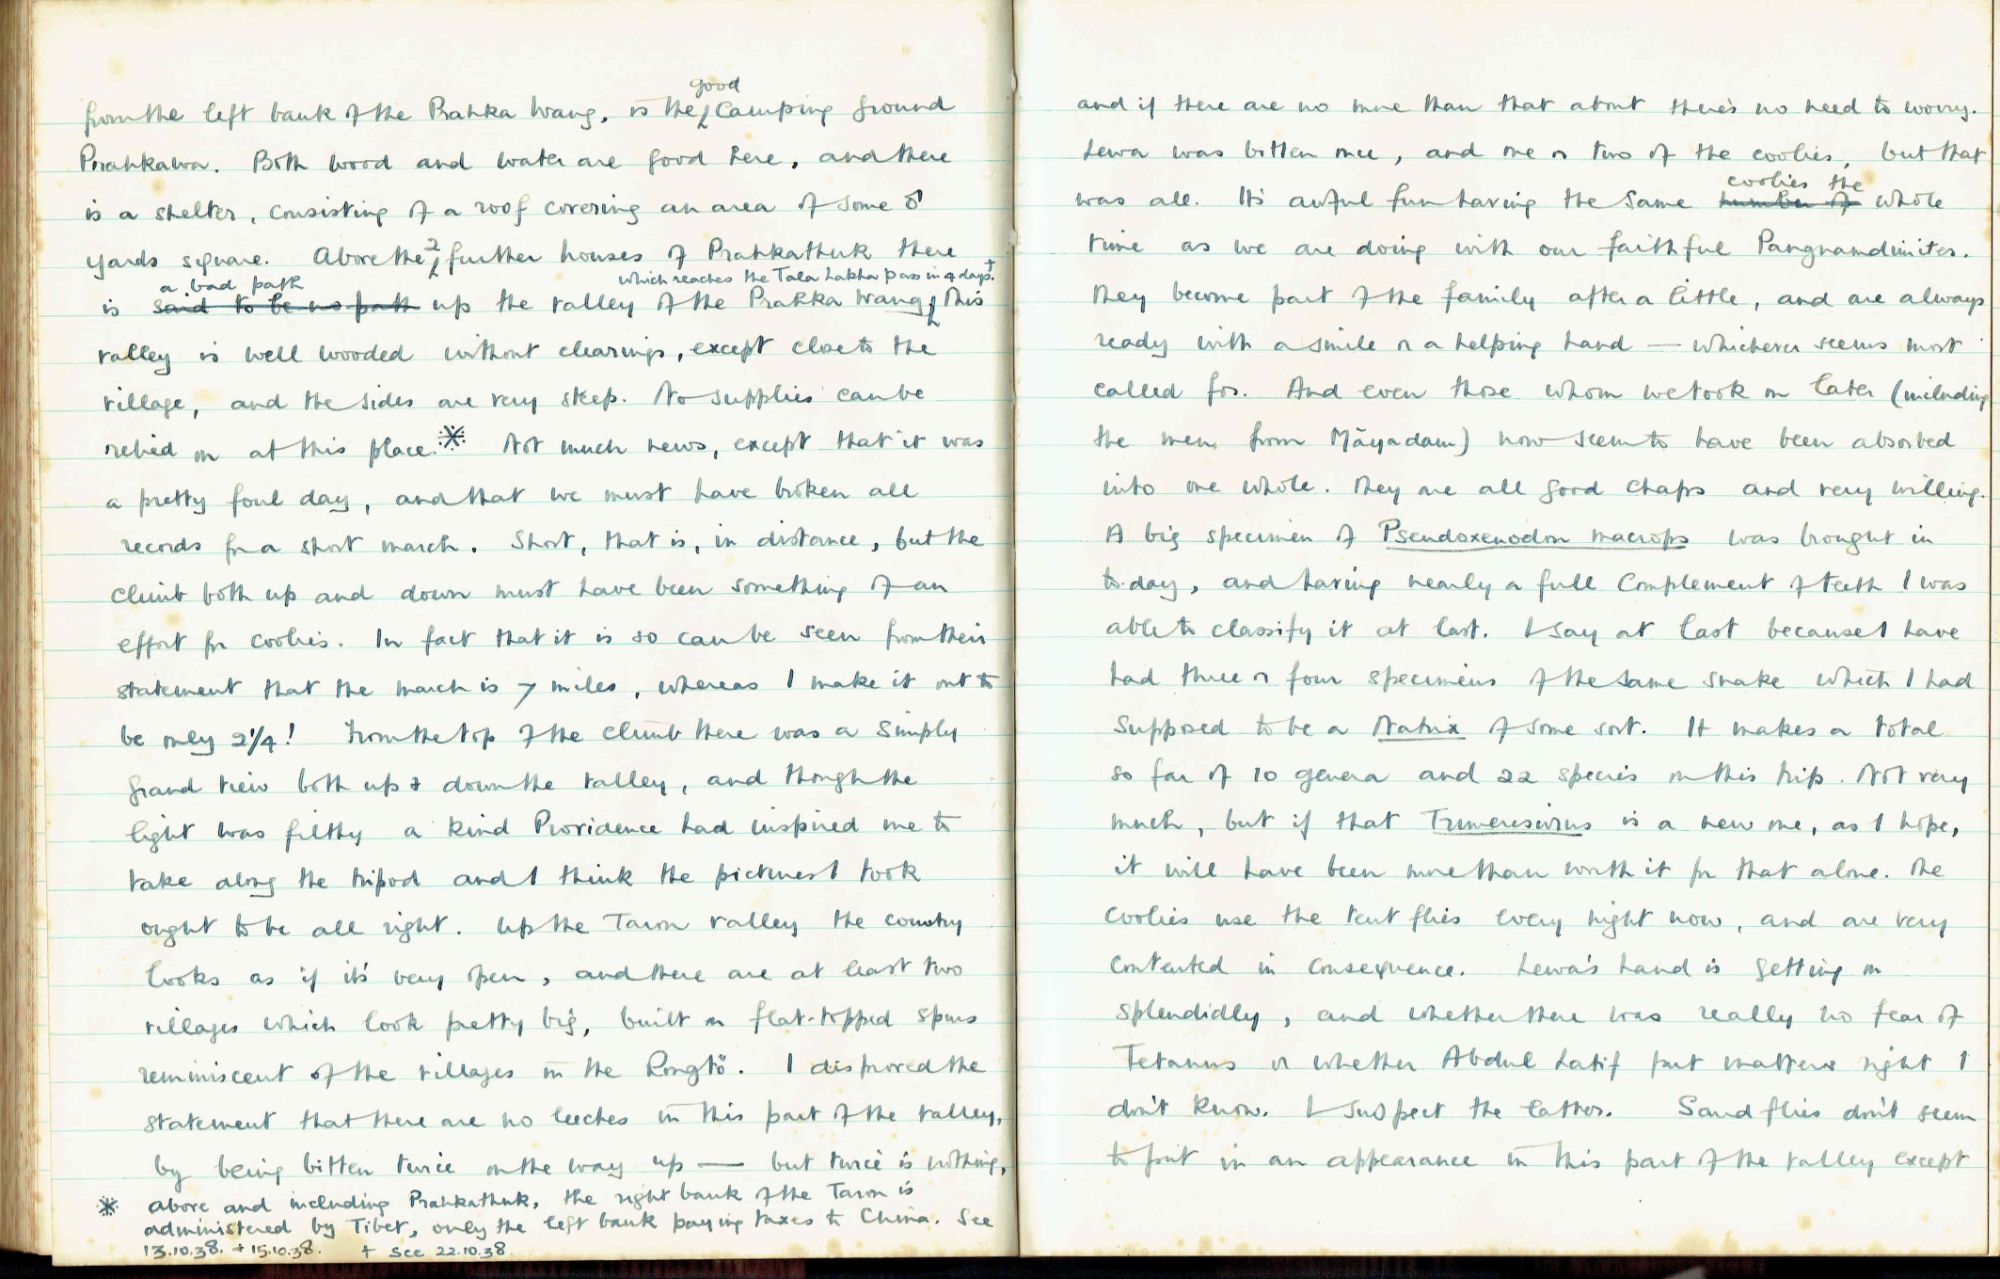 good
from the left bank of the Prahka Wang, is the Camping ground
Prahkawa. Both wood and water are good here, and there
is a shelter, consisting of a roof covering an area of some 8
yards square. Above the 2 further houses of Prahkathuk there
a bad path which reaches the Tala Lakha pass in 4 days.+
is said to be no path up the valley of the Prahka Wang, This
valley is well wooded without clearings, except close to the
village, and the sides are very steep. No supplies can be
relied on at this place.※ Not much news, except that it was
a pretty foul day, and that we must have broken all
records for a short march. Short, that is, in distance, but the
climb both up and down must have been something of an
effort for coolies. In fact that it is so can be seen from their
statement that the march is 7 miles, whereas I make it out to
be only 2¼! From the top of the climb there was a simply
grand view both up & down the valley, and though the
light was filthy a kind Providence had inspired me to
take along the tripod and I think the pictures I took
ought to be all right. Up the Taron valley the country
looks as if it's very open, and there are at least two
villages which look pretty big, built on flat-topped spurs
reminiscent of the villages in the Rongtö. I disproved the
statement that there are no leeches in this part of the valley,
by being bitten twice on the way up — but twice is nothing,
※ above and including Prahkathuk, the right bank of the Taron is
administered by Tibet, only the left bank paying taxes to China. See
13.10.38. + 15.10.38. + See 22.10.38.
and if there are no more than that about there's no need to worry.
Lewa was bitten once, and one or two of the coolies, but that
coolies the
was all. It's awful fun having the same number of whole
time as we are doing with our faithful Pangnamdimites.
They become part of the family after a little, and are always
ready with a smile or a helping hand — whichever seems most
called for. And even those whom we took on later (including
the men from Māyadam) now seem to have been absorbed
into one whole. They are all good chaps and very willing.
A big specimen of Pseudoxenodon macrops was brought in
to-day, and having nearly a full complement of teeth I was
able to classify it at last. I say at last because I have
had three or four specimens of the same snake which I had
supposed to be a Natrix of some sort. It makes a total
so far of 10 genera and 22 species on this trip. Not very
much, but if that Trimeresurus is a new one, as I hope,
it will have been more than worth it for that alone. The
coolies use the tent flies every night now, and are very
contented in consequence. Lewa's hand is getting on
splendidly, and whether there was really no fear of
Tetanus or whether Abdul Latif put matters right I
don't know. I suspect the latter. Sand flies don't seem
to put in an appearance in this part of the valley except